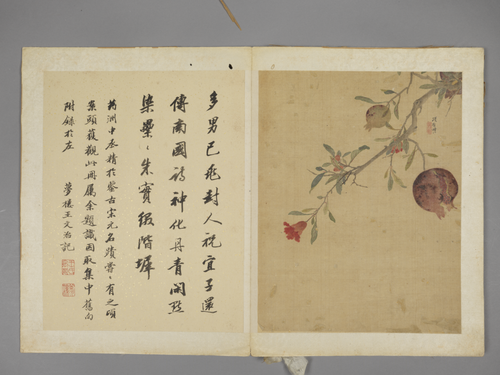 多男已兆封人祝宜子還
傳南國詩神化丹青閒點
染纍〻朱實綴階墀
药洲中丞精於鑒古宋元名蹟〻有之頃
案頭獲觀此冊屬余題識因取集中舊句
附錄於左 夢樓王文治記